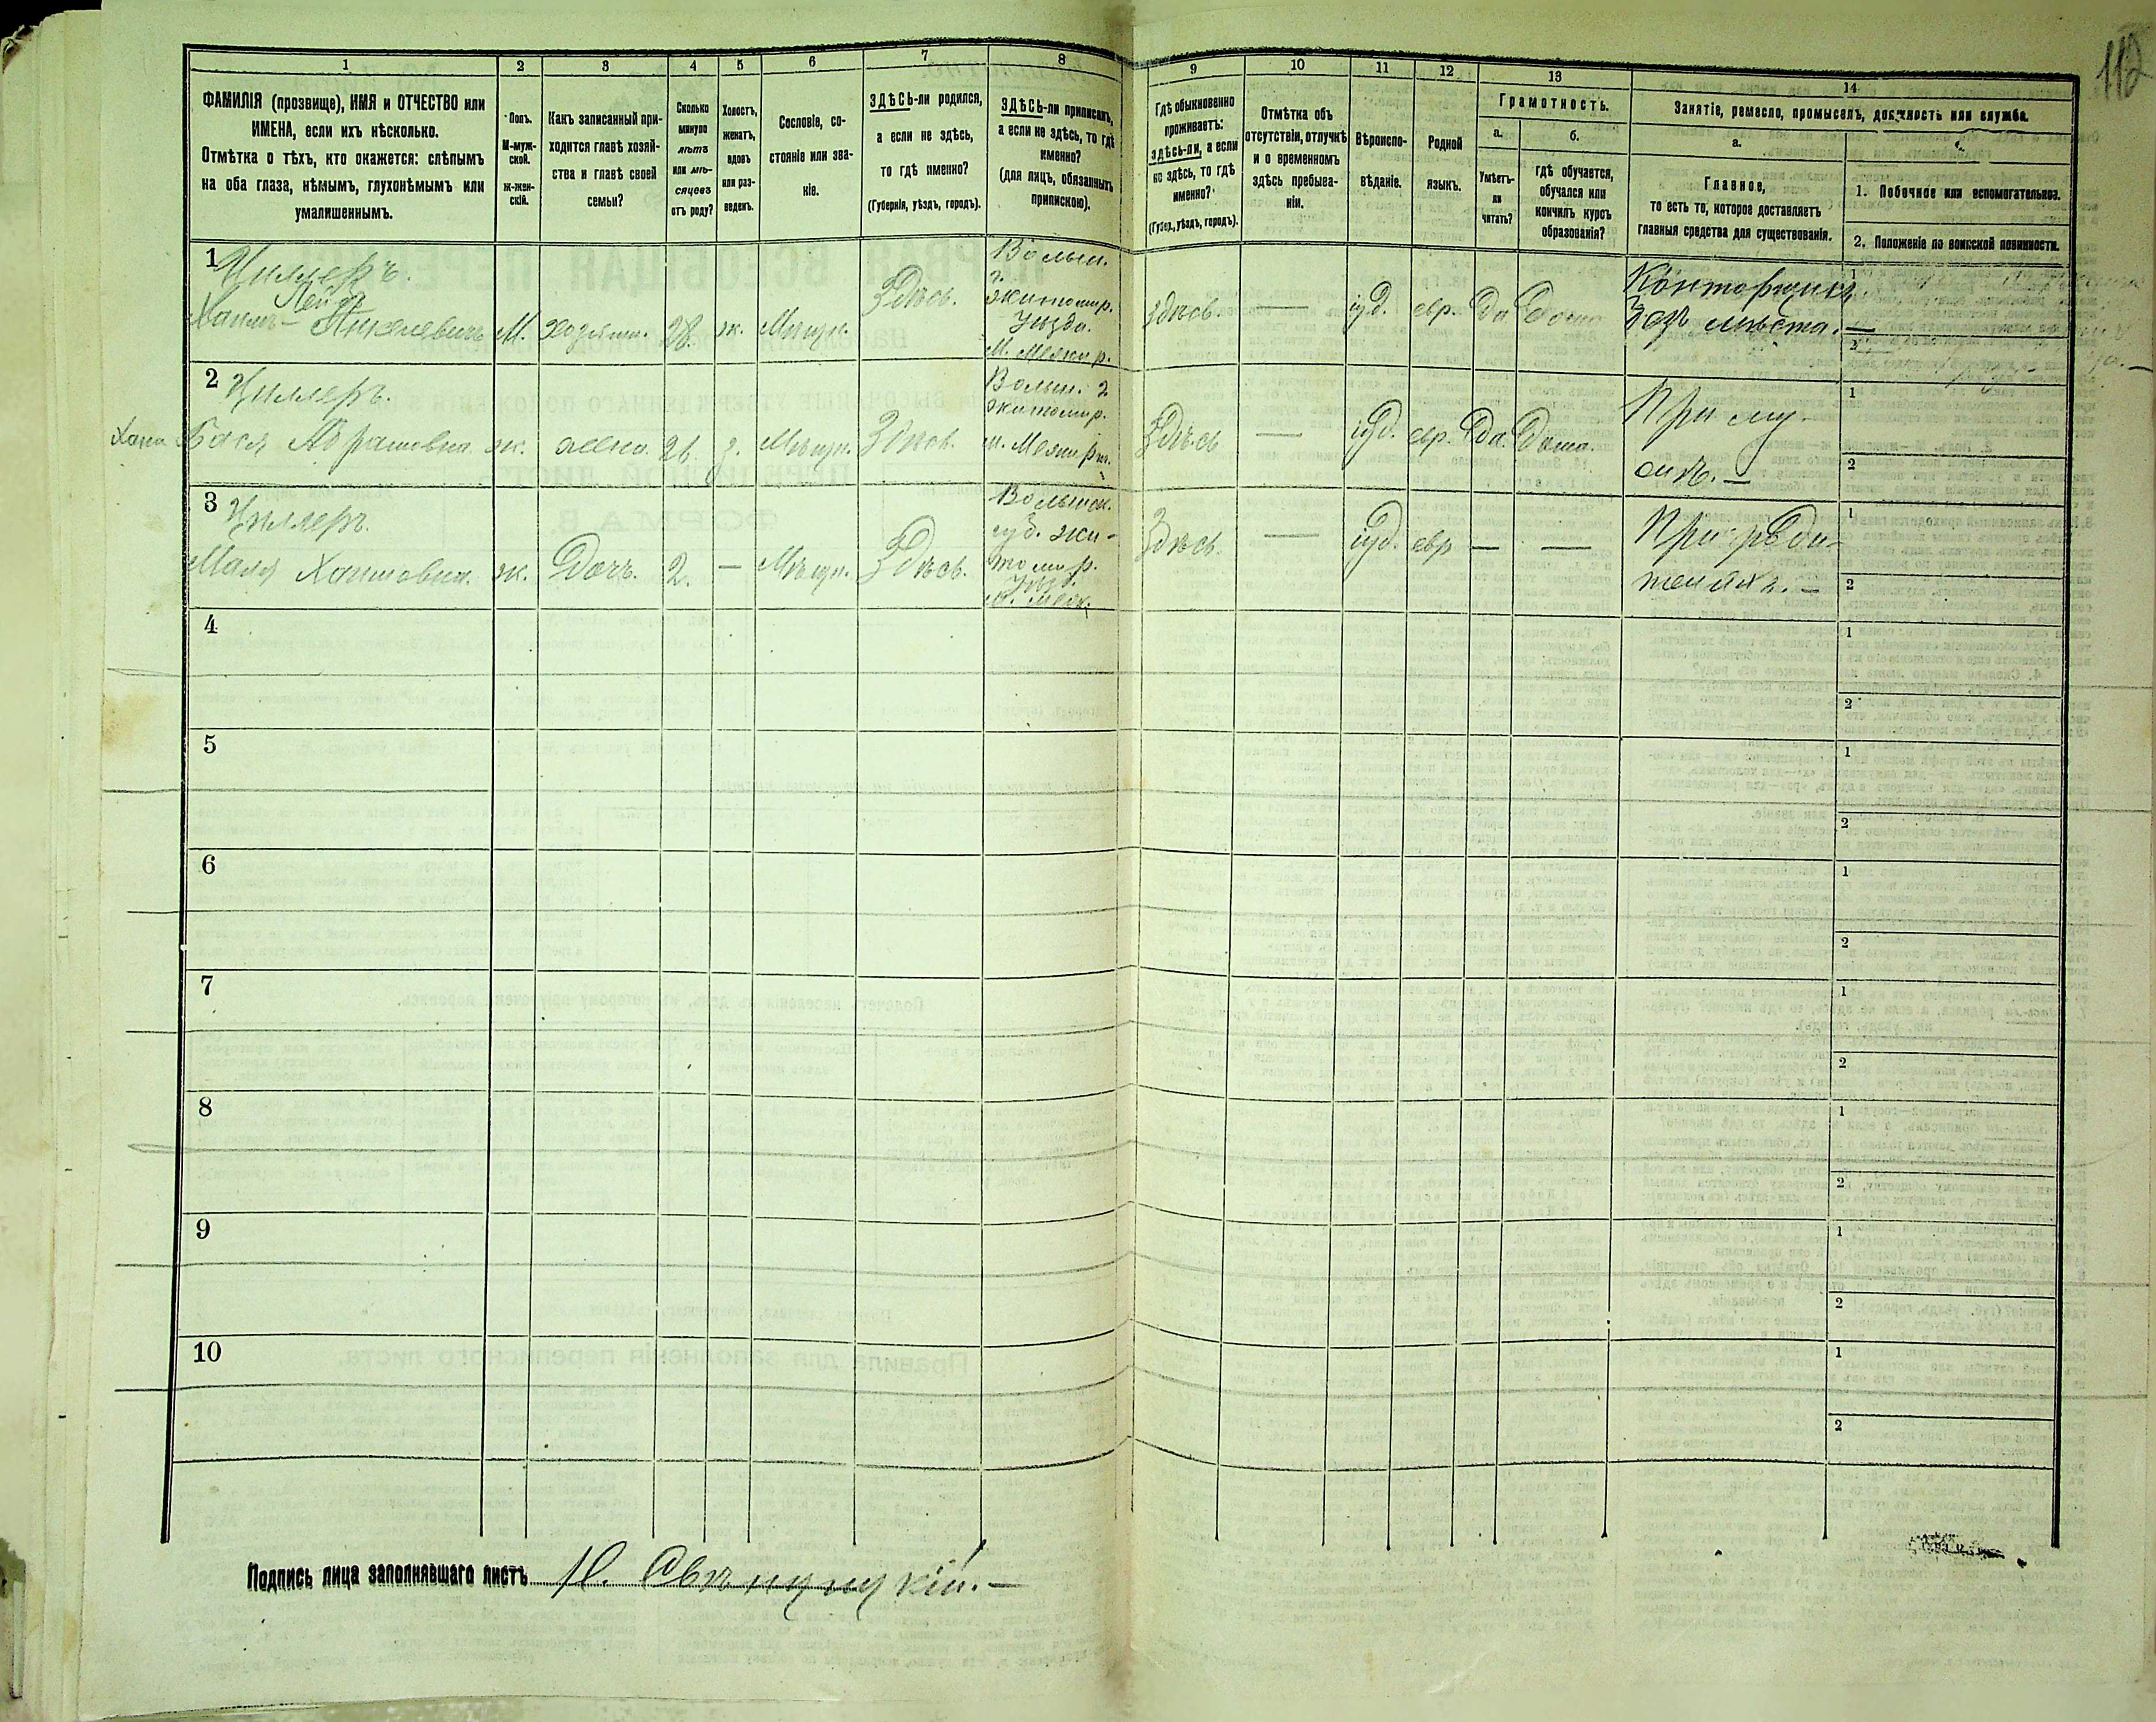 112
1
2
3
4
5
6
7
8
9
10
11
12
13
14
ФАМИЛІЯ (прозвище), ИМЯ и ОТЧЕСТВО или
ИМЕНА, если ихъ нѣсколько.
Отмѣтка о тѣхъ, кто окажется: слѣпымъ
на оба глаза, нѣмымъ, глухонѣмымъ или
умалишеннымъ.
Полъ.
М-муж-
ской.
ж-жен-
скій.
Какъ записанный при-
ходится главѣ хозяй-
ства и главѣ своей
семьи?
Сколько
минуло
лѣтъ
или мѣ-
сяцевъ
отъ роду?
Холостъ,
женатъ,
вдовъ
или раз-
веденъ.
Сословіе, со-
стояніе или зва-
ніе.
ЗДѢСЬ-ли родился,
а если не здѣсь,
то гдѣ именно?
(Губернія, уѣздъ, городъ).
ЗДѢСЬ-ли приписанъ,
а если не здѣсь, то гдѣ
именно?
(для лицъ, обязанныхъ
припискою).
Гдѣ обыкновенно
проживаетъ:
здѣсь-ли, а если
не здѣсь, то гдѣ
именно?
(Губер., уѣздъ, городъ).
Отмѣтка объ
отсутствіи, отлучкѣ
и о временномъ
здѣсь пребыва-
ніи.
Вѣроиспо-
вѣданіе.
Родной
языкъ.
Грамотность.
а.
Умѣетъ-
ли
читать?
б.
гдѣ обучается,
обучался или
кончилъ курсъ
образованія?
Занятіе, ремесло, промыселъ, должность или служба.
а.
Главное,
то есть то, которое доставляетъ
главныя средства для существованія.
1. Побочное или вспомогательное.
2. Положеніе по воинской повинности.
1
Циллеръ.
Лейб
Хаимъ-
М. хозяин. 28. ж. Мѣщан. Здѣсь.
Волын.
г.
Житомир.
Уѣзда.
здѣсь. — іуд. евр. Да Дома
Конторщикъ
Безъ мѣста. —
1
2
2
Циллеръ.
Хана Бася Абрамовна ж. жена. 26. з. Мѣщан. Здѣсь.
Волын. г
Житомир.
Здѣсь — іуд. евр. Да. Дома.
При му-
жѣ. —
1
2
3
Циллеръ.
Маля Хаимовна. ж. Дочь. 2. — Мѣщан. Здѣсь.
Волынск.
губ. Жи-
томир.
Здѣсь. — іуд. евр — —
При роди-
теляхъ. —
1
2
4
1
2
5
1
2
6
1
2
7
1
2
8
1
2
9
1
2
10
1
2
Подпись лица заполнявшаго листъ